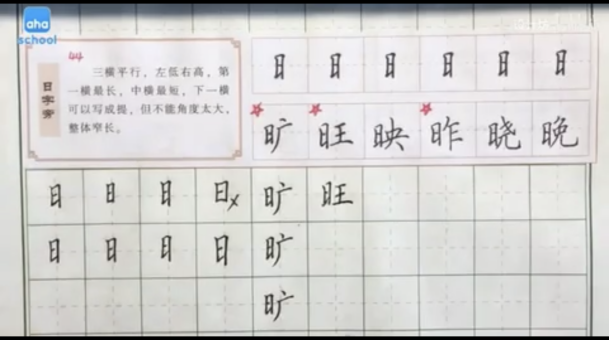 aha
school
44
日字旁
三横平行，左低右高，第
一横最长，中横最短，下一横
可以写成提，但不能角度太大，
整体窄长。
日 日 日 日 日 日
旷 旺 映 昨 晓 晚
日 日 日 日x 旷 旺
日 日 日 日 旷
旷